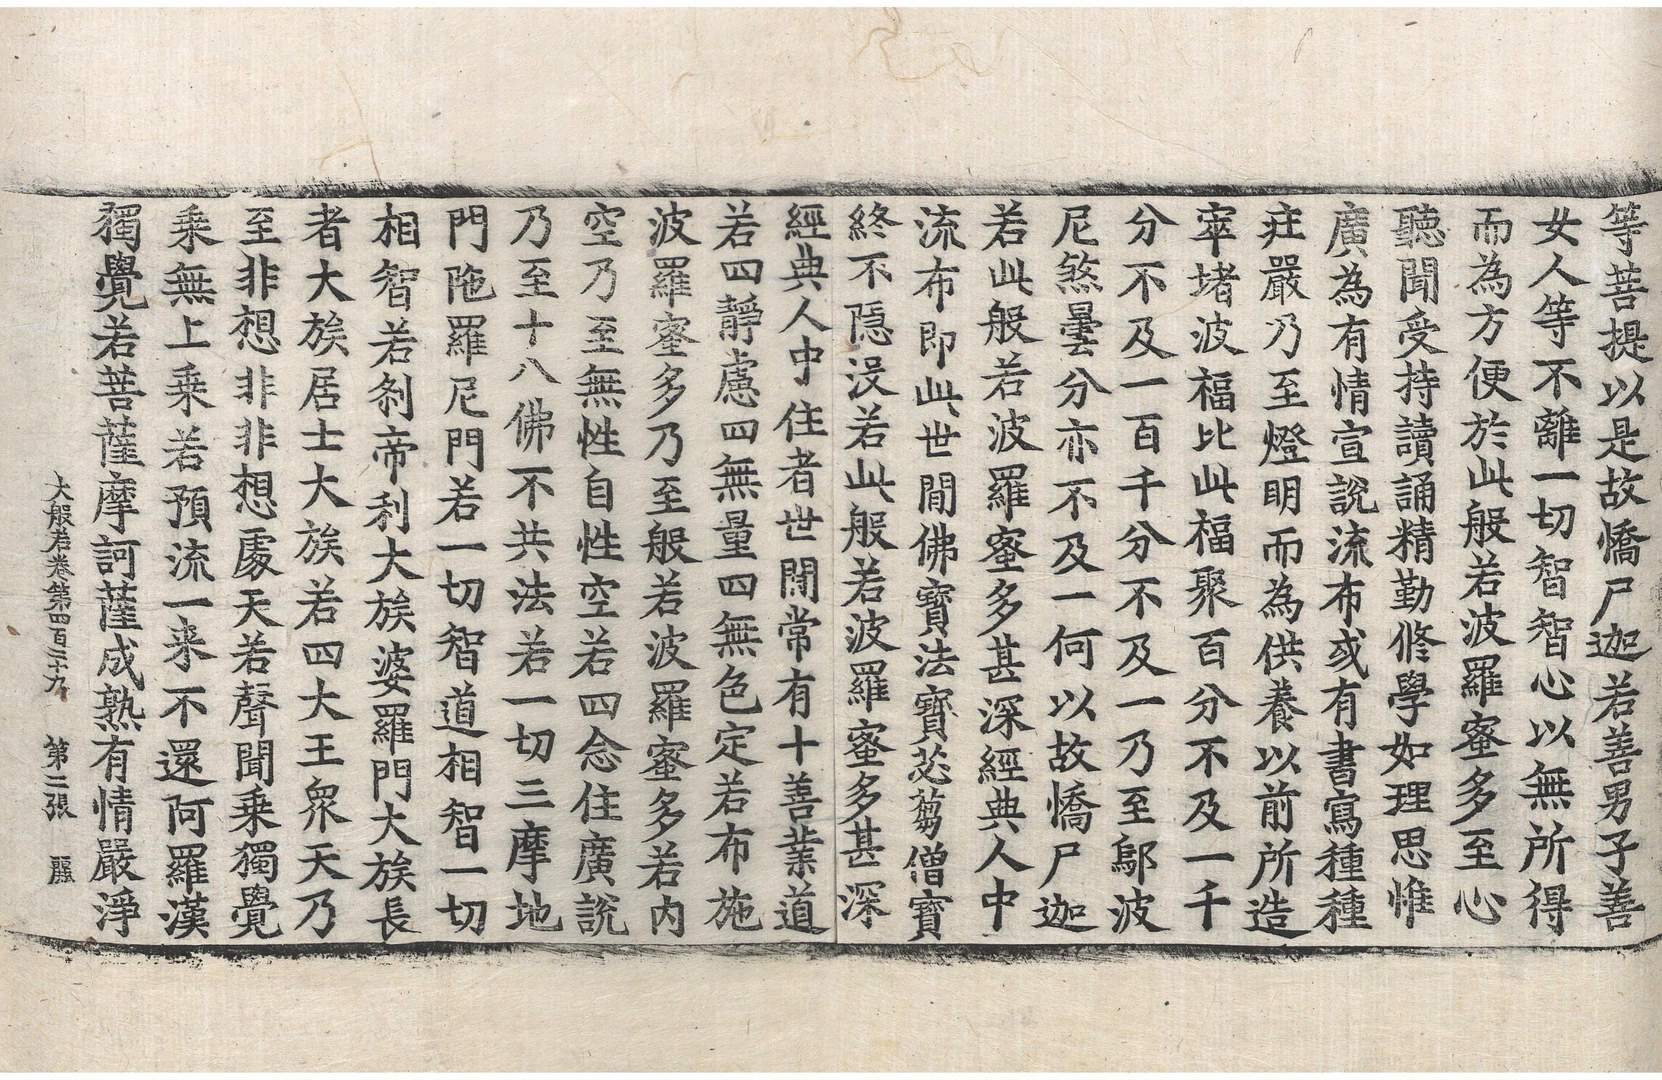 等菩提以是故憍尸迦若善男子善
女人等不離一切智智心以無所得
而為方便於此般若波羅蜜多至心
聽聞受持讀誦精勤修學如理思惟
廣為有情宣說流布或有書寫種種
莊嚴乃至燈明而為供養以前所造
窣堵波福比此福聚百分不及一千
分不及一百千分不及一乃至鄔波
尼煞曇分亦不及一何以故憍尸迦
若此般若波羅蜜多甚深經典人中
流布即此世間佛寶法寶苾芻僧寶
終不隱沒若此般若波羅蜜多甚深
經典人中住者世間常有十善業道
若四靜慮四無量四無色定若布施
波羅蜜多乃至般若波羅蜜多若內
空乃至無性自性空若四念住廣說
乃至十八佛不共法若一切三摩地
門陁羅尼門若一切智道相智一切
相智若剎帝利大族婆羅門大族長
者大族居士大族若四大王眾天乃
至非想非非想處天若聲聞乘獨覺
乘無上乘若預流一来不還阿羅漢
獨覺若菩薩摩訶薩成熟有情嚴淨
大般若卷第四百二十九 第二張 麗